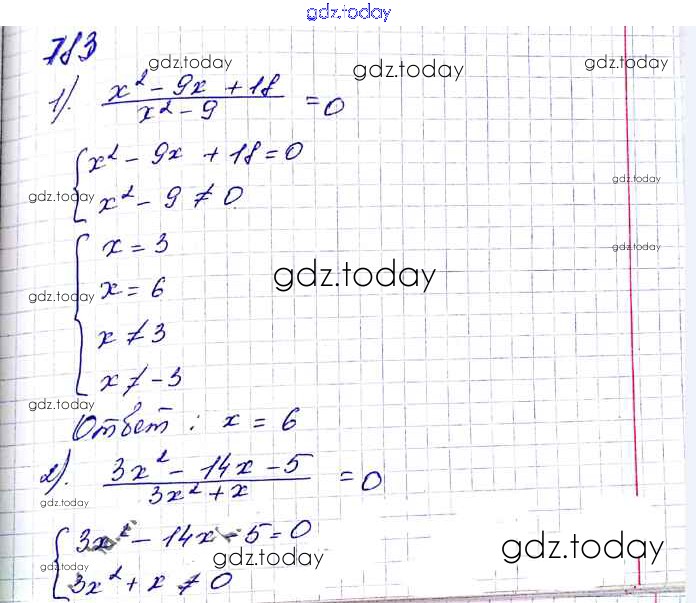 gdz.today
783
gdz.today gdz.today gdz.today
1). (x² - 9x + 18)/(x² - 9) = 0
{ x² - 9x + 18 = 0
gdz.today
gdz.today x² - 9 ≠ 0
{ x = 3
gdz.today
gdz.today
gdz.today x = 6
x ≠ 3
x ≠ -3
gdz.today
Ответ: x = 6
2). (3x² - 14x - 5)/(3x² + x) = 0
gdz.today
{ 3x² - 14x - 5 = 0
gdz.today gdz.today gdz.today
3x² + x ≠ 0